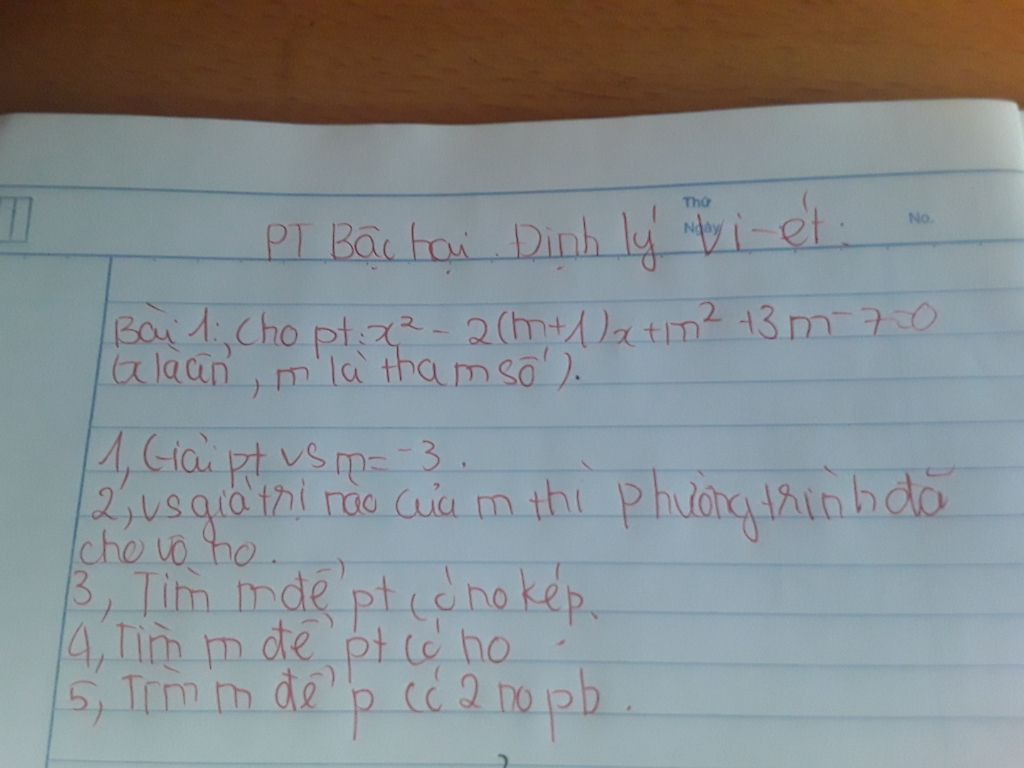 Thứ
Ngày
No.
PT Bậc hai. Định lý Vi-ét:
Bài 1: Cho pt: x² - 2(m+1)x + m² + 3m - 7 = 0
(x là ẩn, m là tham số).
1, Giải pt vs m = -3.
2, vs giá trị nào của m thì phương trình đã
cho vô no.
3, Tìm m để pt có no kép.
4, Tìm m để pt có no.
5, Tìm m để p có 2 no pb.